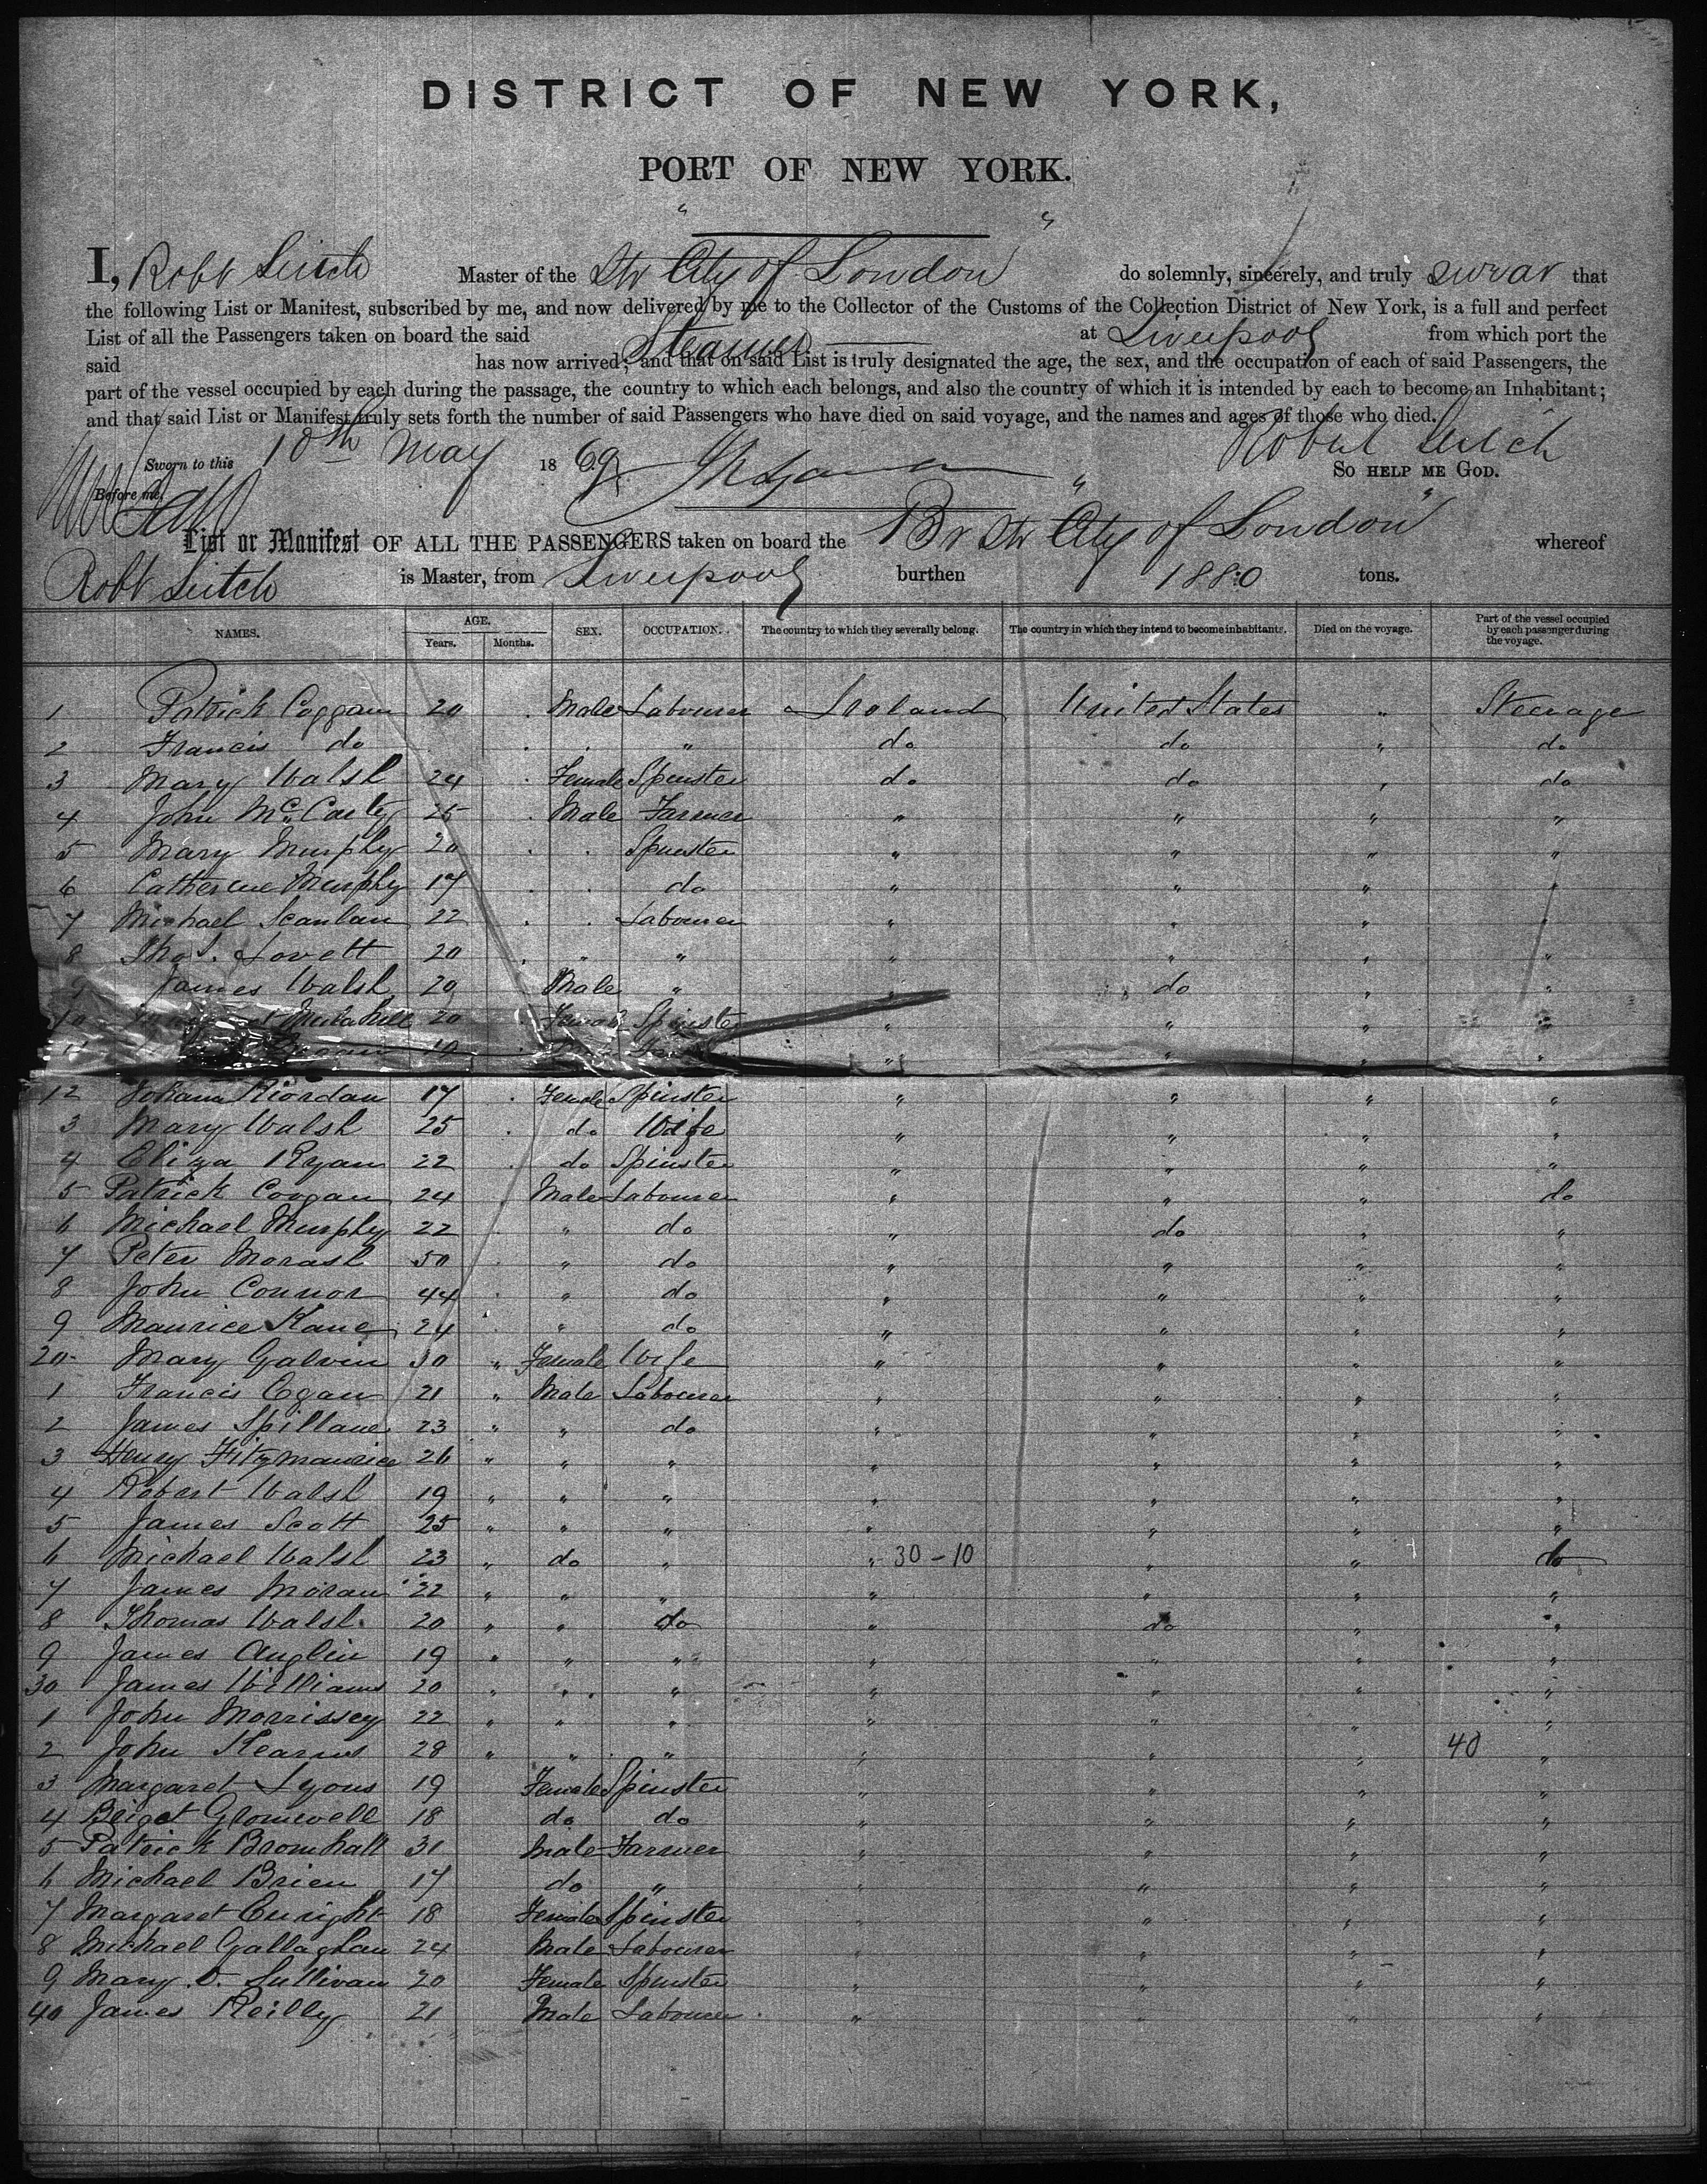 DISTRICT OF NEW YORK,
PORT OF NEW YORK.
" "
I, Robt Leitch Master of the Str City of London do solemnly, sincerely, and truly swear that
the following List or Manifest, subscribed by me, and now delivered by me to the Collector of the Customs of the Collection District of New York, is a full and perfect
List of all the Passengers taken on board the said Steamer at Liverpool from which port the
said has now arrived; and that on said List is truly designated the age, the sex, and the occupation of each of said Passengers, the
part of the vessel occupied by each during the passage, the country to which each belongs, and also the country of which it is intended by each to become an Inhabitant;
and that said List or Manifest truly sets forth the number of said Passengers who have died on said voyage, and the names and ages of those who died.
Robert Leitch
Sworn to this 10th May 1869 So help me God.
Before me,
List or Manifest OF ALL THE PASSENGERS taken on board the Br Str "City of London" whereof
Robt Leitch is Master, from Liverpool burthen 1880 tons.
NAMES. AGE. Years. Months. SEX. OCCUPATION. The country to which they severally belong. The country in which they intend to become inhabitants. Died on the voyage. Part of the vessel occupied by each passenger during the voyage.
1 Patrick Coggan 20 Male Labourer Ireland United States " Steerage
2 Francis do " do do " do
3 Mary Walsh 24 Female Spinster do do " do
4 John McCarty 25 Male Farmer " " " "
5 Mary Murphy 20 Spinster " " " "
6 Catherine Murphy 17 do " " " "
7 Michael Scanlan 22 Labourer " " " "
8 Thos. Lovett 20 " " " " " "
9 James Walsh 20 Male " " do " "
10 20 Female Spinster " " " "
11 " " " "
12 Johana Riordan 17 Female Spinster " " " "
3 Mary Walsh 25 do Wife " " " "
4 Eliza Ryan 22 do Spinster " " " "
5 Patrick Coogan 24 Male Labourer " " " do
6 Michael Murphy 22 " do " do " "
7 Peter Morash 50 " do " " " "
8 John Connor 44 " do " " " "
9 Maurice Kane 24 " do " " " "
20 Mary Galvin 30 " Female Wife " " " "
1 Francis Egan 21 " Male Labourer " " " "
2 James Spillane 23 " " do " " " "
3 Henry Fitzmaurice 26 " " " " " " "
4 Robert Walsh 19 " " " " " " "
5 James Scott 25 " " " " " " "
6 Michael Walsh 23 " do " " 30-10 " " do
7 James Moran 22 " " " " " " "
8 Thomas Walsh 20 " " do " do " "
9 James Anglin 19 " " " " " " "
30 James Williams 20 " " " " " " "
1 John Morrissey 22 " " " " " " "
2 John Kearns 28 " " " " " " 40 "
3 Margaret Lyons 19 Female Spinster " " " "
4 18 do do " " " "
5 Patrick Bromhall 31 Male Farmer " " " "
6 Michael Brien 17 do " " " " "
7 Margaret 18 Female Spinster " " " "
8 Michael Gallaghan 24 Male Labourer " " " "
9 Mary O. Sullivan 20 Female Spinster " " " "
40 James Reilly 21 Male Labourer " " " "